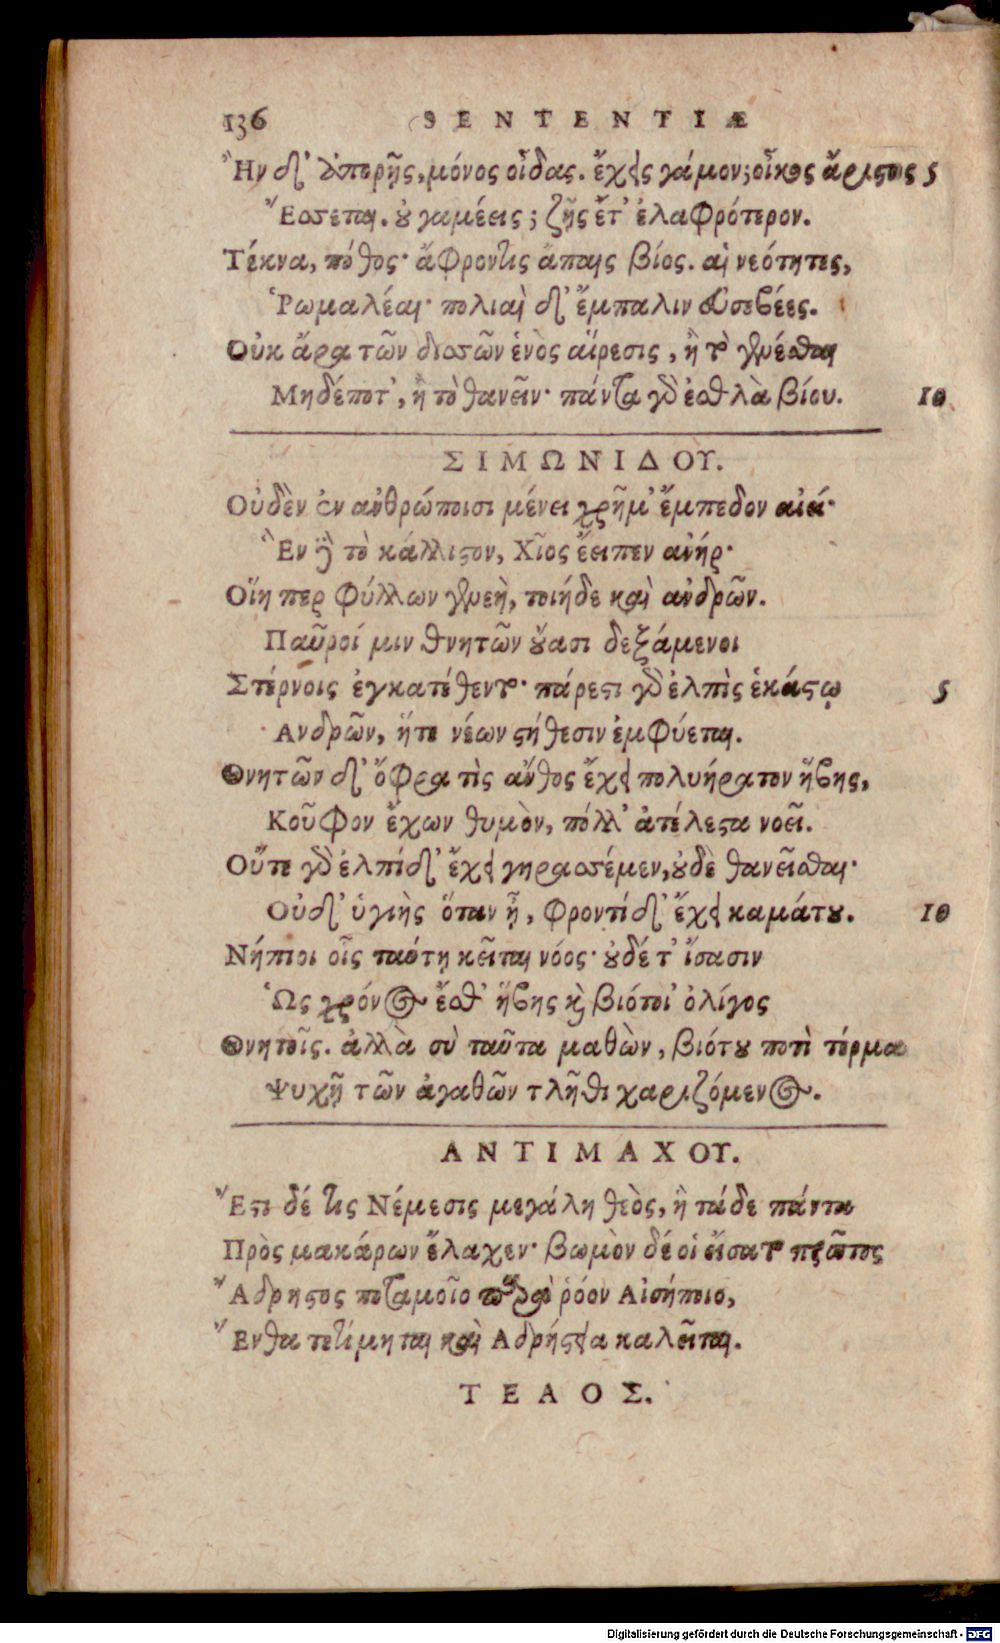 136 SENTENTIÆ
Ἢν δ' ἀπορῇς, μόνος οἶδας. ἔχεις γάμον; οἶκος ἄριστος 5
Ἔσσεται. οὐ γαμέεις; ζῇς ἔτ' ἐλαφρότερον.
Τέκνα, πόθος· ἄφροντις ἄπαις βίος. αἱ νεότητες,
Ῥωμαλέαι· πολιαὶ δ' ἔμπαλιν εὐσεβέες.
Οὐκ ἄρα τῶν δισσῶν ἑνὸς αἵρεσις, ἢ τὸ γενέσθαι
Μηδέποτ', ἢ τὸ θανεῖν· πάντα γὰρ ἐσθλὰ βίου. 10
ΣΙΜΩΝΙΔΟΥ.
Οὐδὲν ἐν ἀνθρώποισι μένει χρῆμ' ἔμπεδον αἰεί·
Ἓν δὲ τὸ κάλλιστον, Χῖος ἔειπεν ἀνήρ·
Οἵη περ φύλλων γενεὴ, τοιήδε καὶ ἀνδρῶν.
Παῦροί μιν θνητῶν οὔασι δεξάμενοι
Στέρνοις ἐγκατέθεντο· πάρεστι γὰρ ἐλπὶς ἑκάστῳ 5
Ἀνδρῶν, ἥτε νέων στήθεσιν ἐμφύεται.
Θνητῶν δ' ὄφρα τὶς ἄνθος ἔχει πολυήρατον ἥβης,
Κοῦφον ἔχων θυμὸν, πόλλ' ἀτέλεστα νοεῖ.
Οὔτε γὰρ ἐλπίδ' ἔχει γηρασσέμεν, οὐδὲ θανεῖσθαι·
Οὐδ' ὑγιὴς ὅταν ᾖ, φροντίδ' ἔχει καμάτου. 10
Νήπιοι οἷς ταύτῃ κεῖται νόος· οὐδέ τ' ἴσασιν
Ὡς χρόνος ἔσθ' ἥβης καὶ βιότοι' ὀλίγος
Θνητοῖς. ἀλλὰ σὺ ταῦτα μαθὼν, βιότου ποτὶ τέρμα
Ψυχῇ τῶν ἀγαθῶν τλῆθι χαριζόμενος.
ΑΝΤΙΜΑΧΟΥ.
Ἔστι δέ τις Νέμεσις μεγάλη θεὸς, ἣ τάδε πάντα
Πρὸς μακάρων ἔλαχεν· βωμὸν δέ οἱ εἵσατο πρῶτος
Ἄδρηστος ποταμοῖο παρὰ ῥόον Αἰσήποιο,
Ἔνθα τετίμηται καὶ Ἀδρήστεια καλεῖται.
ΤΕΛΟΣ.
Digitalisierung gefördert durch die Deutsche Forschungsgemeinschaft - DFG